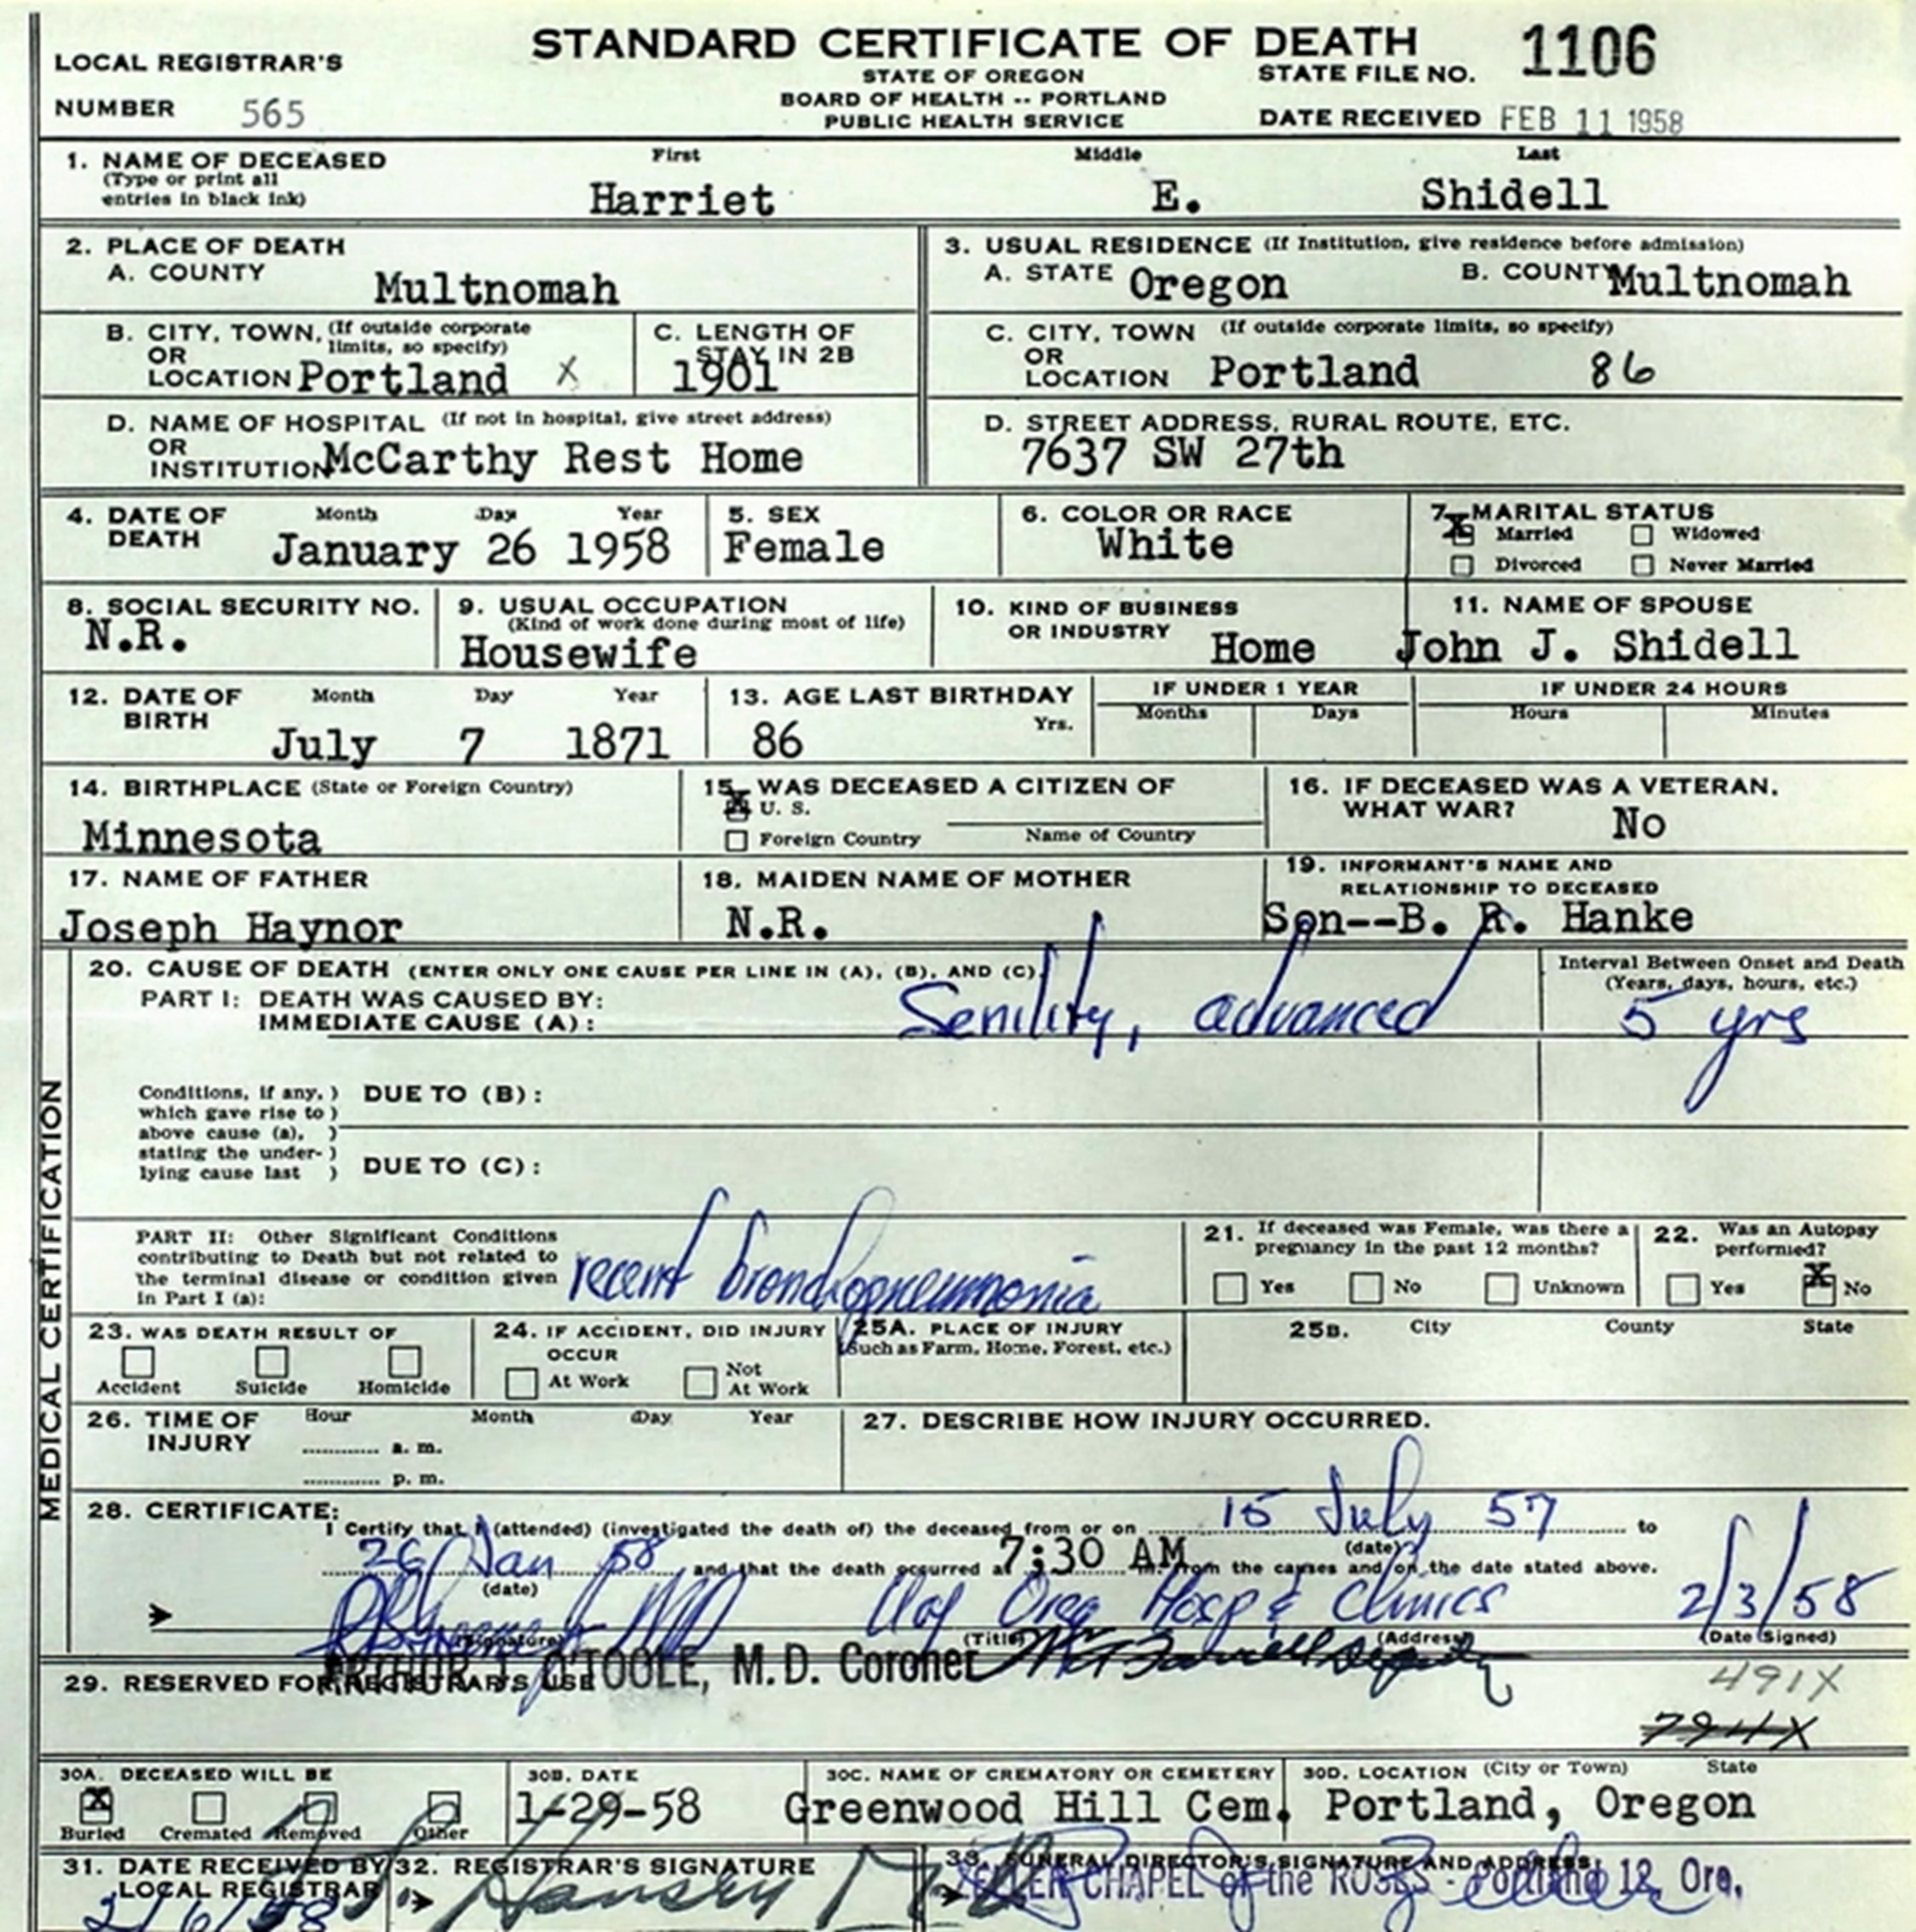 STANDARD CERTIFICATE OF DEATH
1106
LOCAL REGISTRAR'S
NUMBER 565
STATE OF OREGON
BOARD OF HEALTH -- PORTLAND
PUBLIC HEALTH SERVICE
STATE FILE NO.
DATE RECEIVED FEB 11 1958
1. NAME OF DECEASED
(Type or print all
entries in black ink)
First Middle Last
Harriet E. Shidell
2. PLACE OF DEATH
A. COUNTY Multnomah
3. USUAL RESIDENCE (If Institution, give residence before admission)
A. STATE Oregon B. COUNTY Multnomah
B. CITY, TOWN, (If outside corporate
OR limits, so specify)
LOCATION Portland X
C. LENGTH OF
STAY IN 2B
1901
C. CITY, TOWN (If outside corporate limits, so specify)
OR
LOCATION Portland 86
D. NAME OF HOSPITAL (If not in hospital, give street address)
OR
INSTITUTION McCarthy Rest Home
D. STREET ADDRESS, RURAL ROUTE, ETC.
7637 SW 27th
4. DATE OF
DEATH
Month Day Year
January 26 1958
5. SEX
Female
6. COLOR OR RACE
White
7. MARITAL STATUS
X Married Widowed
Divorced Never Married
8. SOCIAL SECURITY NO.
N.R.
9. USUAL OCCUPATION
(Kind of work done during most of life)
Housewife
10. KIND OF BUSINESS
OR INDUSTRY Home
11. NAME OF SPOUSE
John J. Shidell
12. DATE OF
BIRTH
Month Day Year
July 7 1871
13. AGE LAST BIRTHDAY
Yrs.
86
IF UNDER 1 YEAR
Months Days
IF UNDER 24 HOURS
Hours Minutes
14. BIRTHPLACE (State or Foreign Country)
Minnesota
15. WAS DECEASED A CITIZEN OF
X U. S.
Foreign Country Name of Country
16. IF DECEASED WAS A VETERAN,
WHAT WAR? No
17. NAME OF FATHER
Joseph Haynor
18. MAIDEN NAME OF MOTHER
N.R.
19. INFORMANT'S NAME AND
RELATIONSHIP TO DECEASED
Son--B. R. Hanke
MEDICAL CERTIFICATION
20. CAUSE OF DEATH (ENTER ONLY ONE CAUSE PER LINE IN (A), (B), AND (C).
PART I: DEATH WAS CAUSED BY:
IMMEDIATE CAUSE (A): Senility, advanced
Interval Between Onset and Death
(Years, days, hours, etc.)
5 yrs
Conditions, if any, )
which gave rise to )
above cause (a), )
stating the under- )
lying cause last )
DUE TO (B):
DUE TO (C):
PART II: Other Significant Conditions
contributing to Death but not related to
the terminal disease or condition given
in Part I (a):
recent bronchopneumonia
21. If deceased was Female, was there a
pregnancy in the past 12 months?
Yes No Unknown
22. Was an Autopsy
performed?
Yes X No
23. WAS DEATH RESULT OF
Accident Suicide Homicide
24. IF ACCIDENT, DID INJURY
OCCUR
At Work Not
At Work
25A. PLACE OF INJURY
(Such as Farm, Home, Forest, etc.)
25B. City County State
26. TIME OF
INJURY
Hour Month Day Year
a. m.
p. m.
27. DESCRIBE HOW INJURY OCCURRED.
28. CERTIFICATE:
I Certify that I (attended) (investigated the death of) the deceased from or on 15 July 57 to
(date)
26 Jan 58 and that the death occurred at 7:30 AM m. from the causes and on the date stated above.
(date)
MD U of Oreg Hosp & Clinics 2/3/58
(Signature) (Title) (Address) (Date Signed)
ARTHUR J. O'TOOLE, M.D. Coroner Deputy
29. RESERVED FOR REGISTRAR'S USE
491X
794X
30A. DECEASED WILL BE
X
Buried Cremated Removed Other
30B. DATE
1-29-58
30C. NAME OF CREMATORY OR CEMETERY
Greenwood Hill Cem.
30D. LOCATION (City or Town) State
Portland, Oregon
31. DATE RECEIVED BY
LOCAL REGISTRAR
2/6/58
32. REGISTRAR'S SIGNATURE
33. FUNERAL DIRECTOR'S SIGNATURE AND ADDRESS
CHAPEL of the ROSES - Portland 12, Ore.